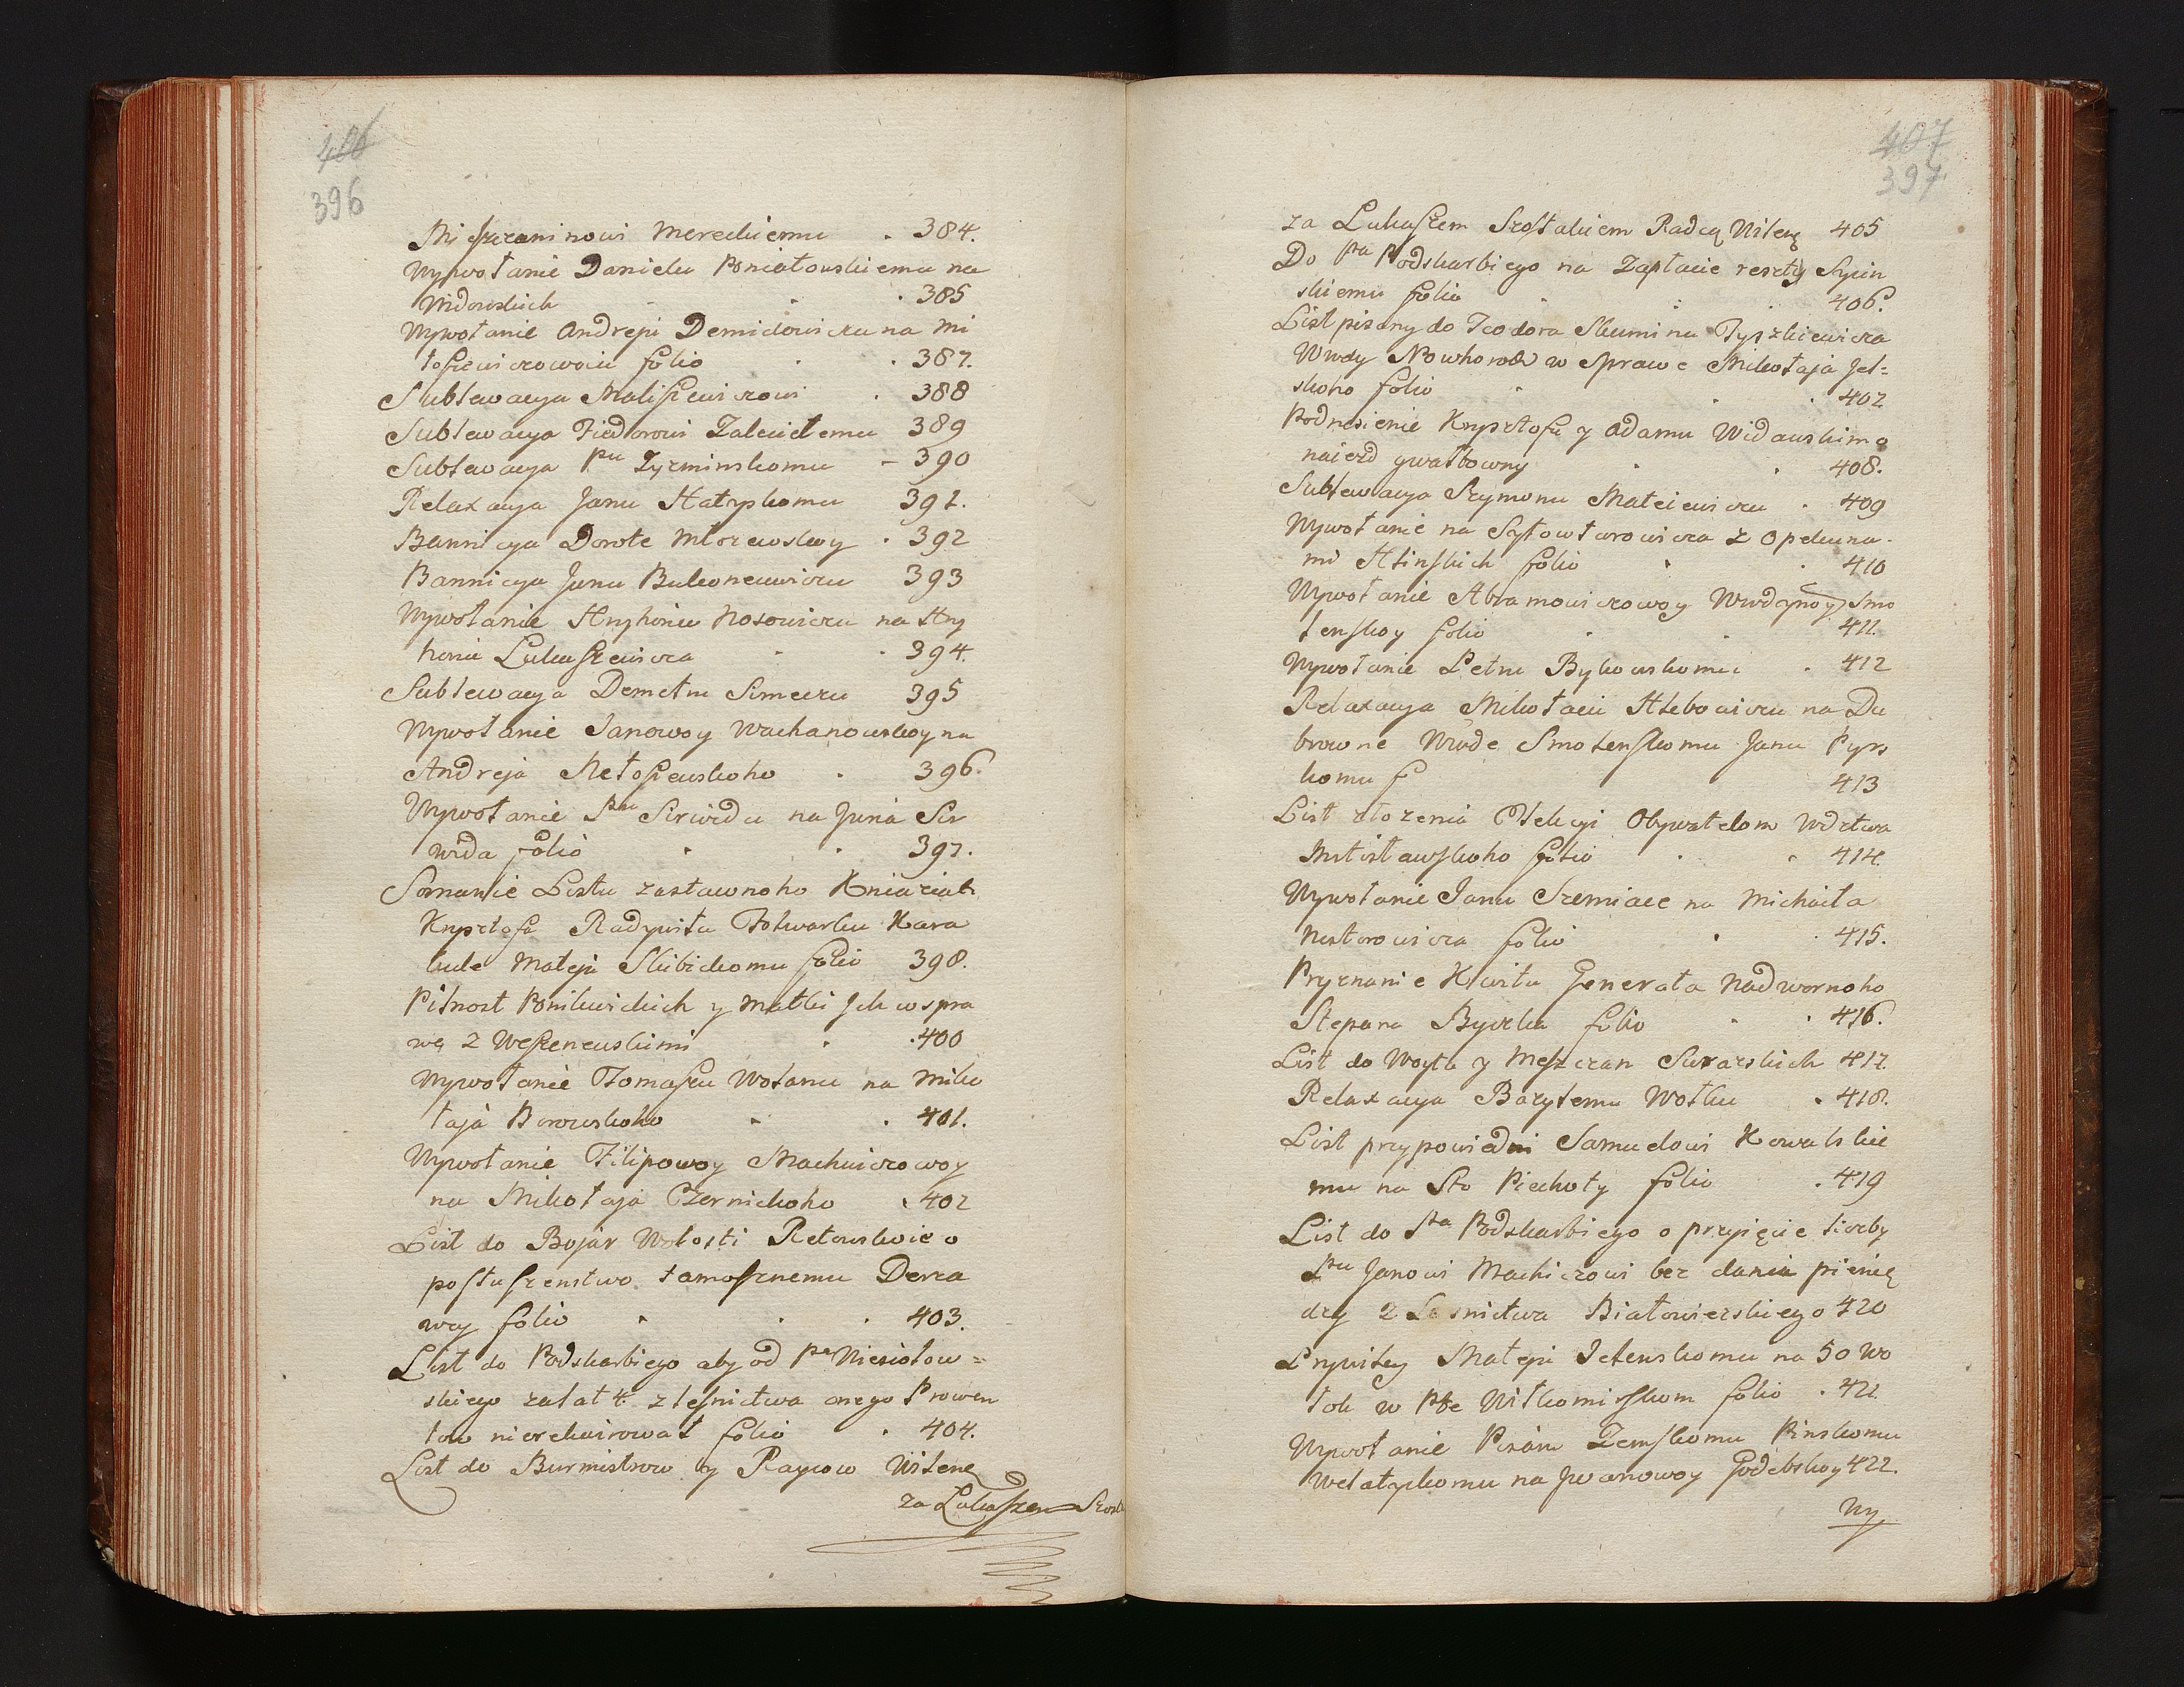 406
396
Mieszczaninowi Mereckiemu . 384.
Wywołanie Danielu Poniatowskiemu na
Widowskich . . . 385
Wywołanie Andreju Demidowiczu na Mi
łoszewiczowoiu folio . . 387.
Sublewacya Maliszewiczowi . 388
Sublewacya Fiedorowi Zaleckiemu 389
Sublewacya Pu Zyzminskomu – 390
Relaxacya Janu Hatyskomu 391.
Bannicya Dorote Mlozewskoy . 392
Bannicya Janu Bukoneuwiczu 393
Wywołanie Hryhoriu Nosowiczu na Hry
horia Lukaszewicza . . 394.
Sublewacya Demetru Simeczu 395
Wywołanie Janowoy Wachanowskoy na
Andreja Netoszewskoho . 396.
Wywołanie Pnu Scirwidu na Juria Scir
wida folio . . 397.
Soznanie Listu zastawnoho Kniazial
Krysztofa Radywiła Folwarku Kara
kule Mateju Skibickomu folio 398.
Pilnost Ponikwickich y Matki Jch w spra
wę z Weszenewskimi . . 400
Wywołanie Tomaszu Wolanu na Miko
łaja Borowskoho . . 401.
Wywołanie Filipowoy Machwiczowoy
na Mikołaja Czernickoho . 402
List do Bojar Wołosti Retowskoie o
posłuszenstwo tamosznemu Derza
wcy folio . . . 403.
List do Podskarbiego aby od Pa Niesiołow=
skiego za lat 4. z lesnictwa onego Prowen
tow nierekwirował folio . 404.
List do Burmistrow y Raycow Wilene
za Lukaszem Szost
407
397
za Lukaszem Szostakiem Radcą Wilenę 405
Do Pna Podskarbiego na Zapłacie reszty Sycin
skiemu folio . . . 406.
List pisany do Teodora Skumina Tyszkiewicza
Wwdy Nowhorodz w Sprawe Mikołaja Jel=
skoho folio . . . 402
Podnesienie Krysztofu y Adamu Widawskim o
naiezd gwałtowny . . 408.
Sublewacya Szymonu Mateiewiczu . 409
Wywołanie na Szyłowtorowicza z Opekuna-
mi Hlinskich folio . . 410
Wywołanie Abramowiczowoy Wwdzynoy Smo
lenskoy folio . . 411.
Wywołanie Petru Bykowskomu . 412
Relaxacya Mikołaiu Hlebowiczu na Du
browne Wwde Smolenskomu Janu Pyrs
komu f 413
List złozenia Elekcyi Obywatelom Wdztwa
Mstisławskoho folio . . 414.
Wywołanie Janu Szemiace na Michaiła
Nestorowicza folio . . 415.
Pryznanie Kwitu Generała Nadwornoho
Stepana Byczka folio . . 416.
List do Woyta y Meszczan Surazskich 417.
Relaxacya Bazylemu Wołku . 418.
List przypowiedni Samuelowi Kowalskie
mu na Sto Piechoty folio . 419
List do Pna Podskarbiego o przyięcie liczby
Pnu Janowi Machiczowi bez dania pienię
dzy z Lesnictwa Białowiezskiego 420
Prywiley Mateju Jelenskomu na 50 Wo
łok w Pte Wiłkomirskom folio . 421
Wywołanie Pisaru Zemskomu Pinskomu
Welatyckomu na Jwanowoy Godebskoy 422.
Wy